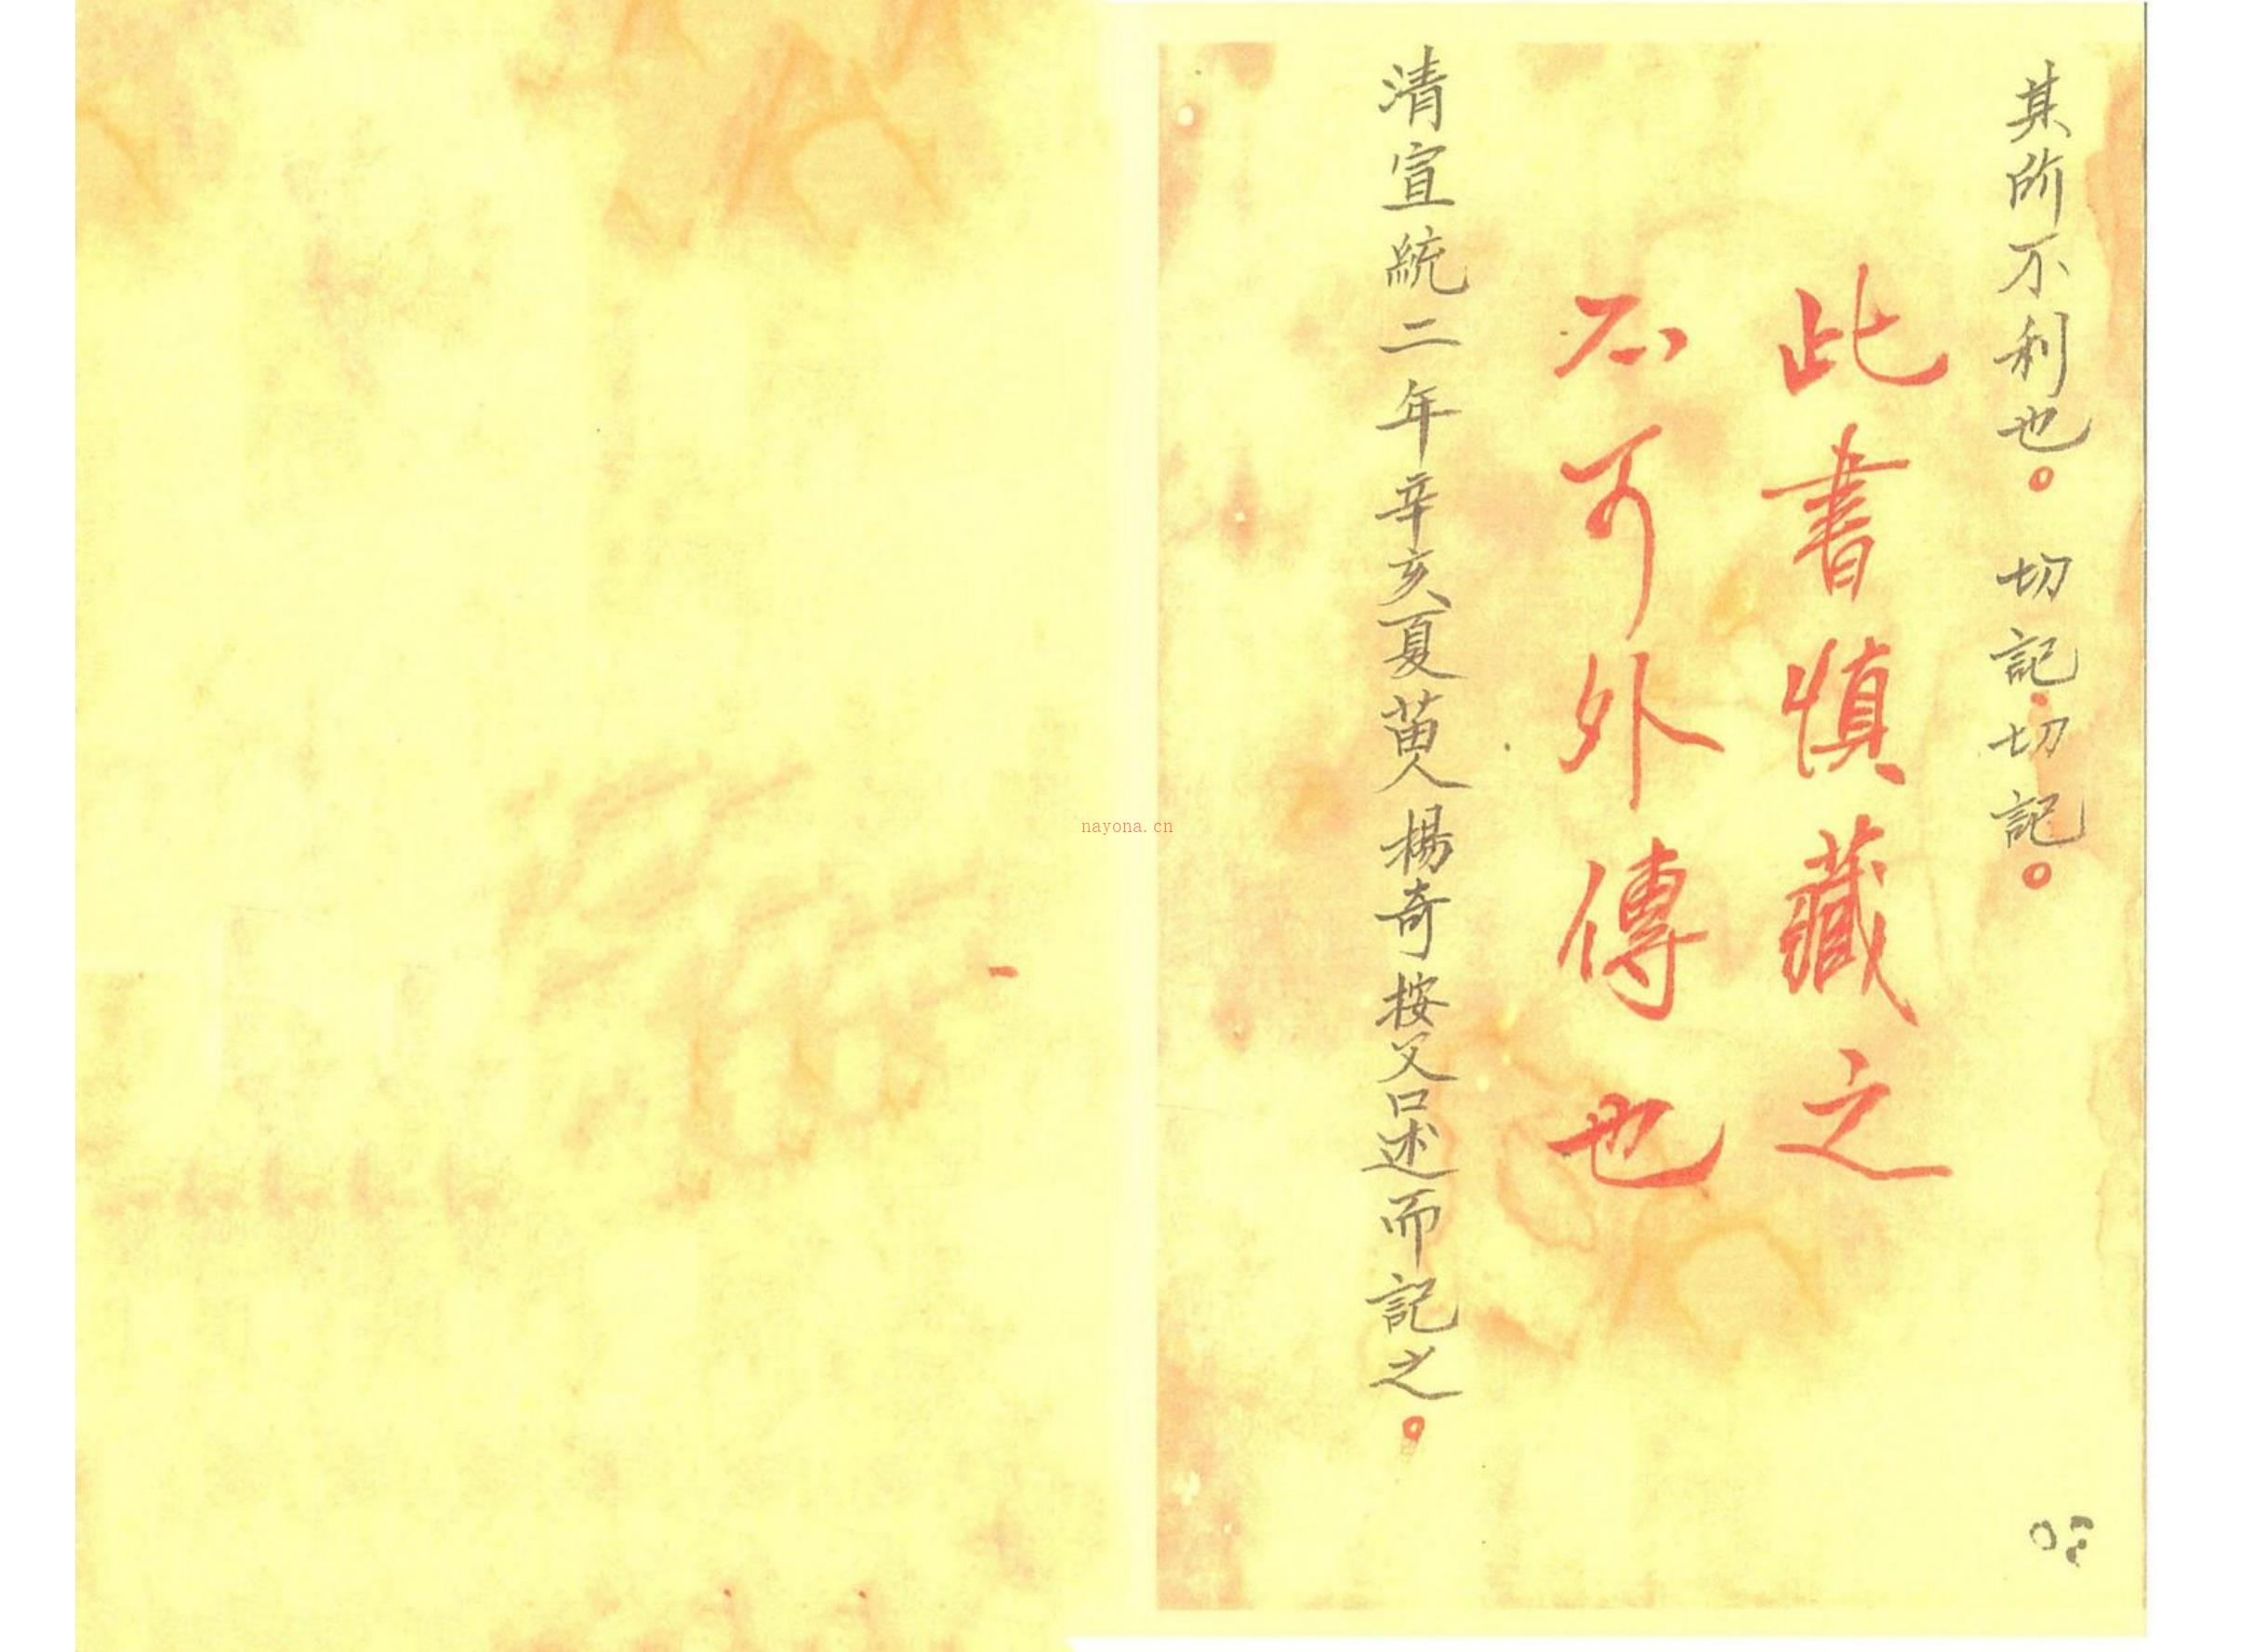 其所不利也。切記、切記。
此書慎藏之
不可外傳也
清宣統二年辛亥夏苗人楊奇按父口述而記之。
nayona.cn